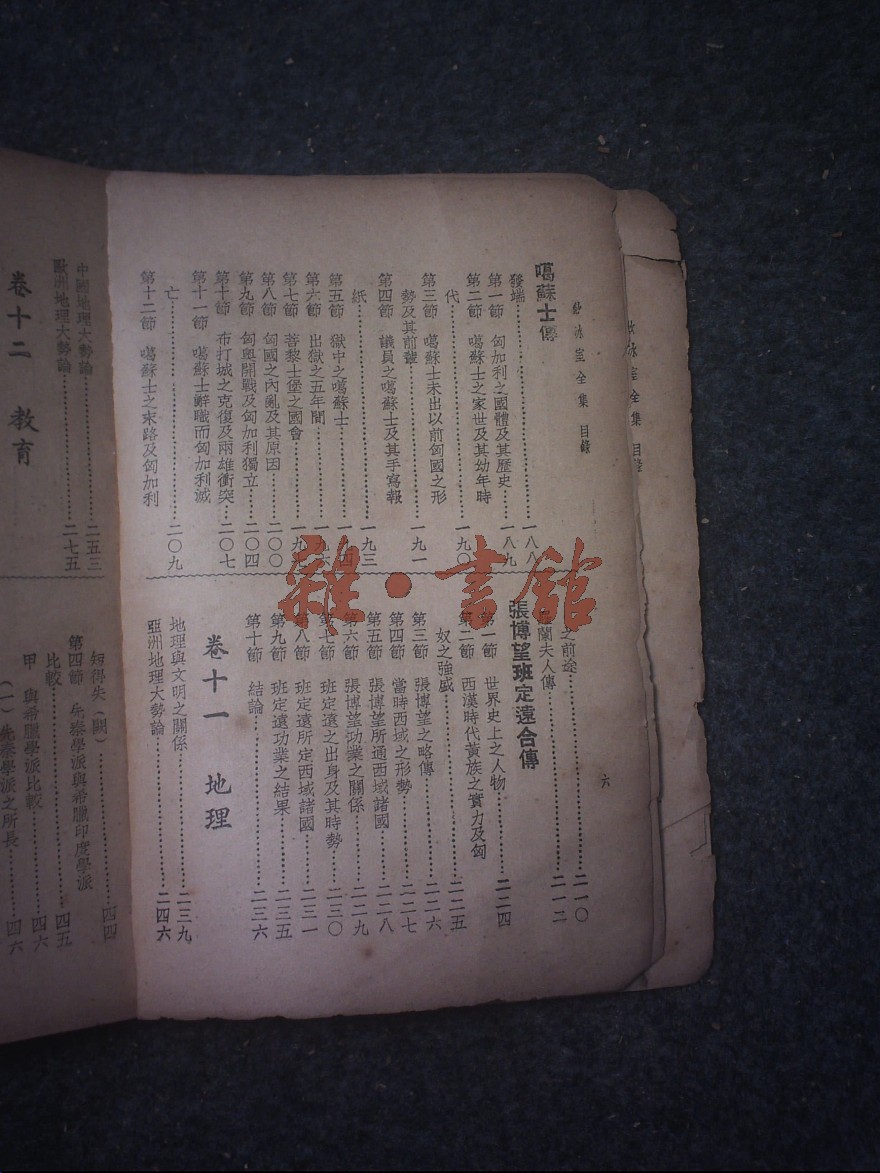 冰室全集 目錄
六
噶蘇士傳
發端……一八八
第一節 匈加利之國體及其歷史……一八九
第二節 噶蘇士之家世及其幼年時
代……一九〇
第三節 噶蘇士未出以前匈國之形
勢及其前輩……一九一
第四節 議員之噶蘇士及其手寫報
紙……一九三
第五節 獄中之噶蘇士……一九四
第六節 出獄之五年間……一九六
第七節 菩黎士堡之國會……一九
第八節 匈國之內亂及其原因……二〇〇
第九節 匈奧開戰及匈加利獨立……二〇四
第十節 布打城之克復及兩雄衝突……二〇七
第十一節 噶蘇士辭職而匈加利滅
亡……二〇九
第十二節 噶蘇士之末路及匈加利
之前途……二一〇
蘭夫人傳……二一二
張博望班定遠合傳
第一節 世界史上之人物……二二四
第二節 西漢時代黃族之實力及匈
奴之強盛……二二五
第三節 張博望之略傳……二二六
第四節 當時西域之形勢……二二七
第五節 張博望所通西域諸國……二二八
第六節 張博望功業之關係……二二九
第七節 班定遠之出身及其時勢……二三〇
第八節 班定遠所定西域諸國……二三一
第九節 班定遠功業之結果……二三五
第十節 結論……二三六
卷十一 地理
地理與文明之關係……二三九
亞洲地理大勢論……二四六
中國地理大勢論……二五三
歐洲地理大勢論……二七五
卷十二 教育
短得失(闕)……四四
第四節 先秦學派與希臘印度學派
比較……四五
甲 與希臘學派比較……四六
(一)先秦學派之所長……四六
冰室全集 目錄
雜·書館